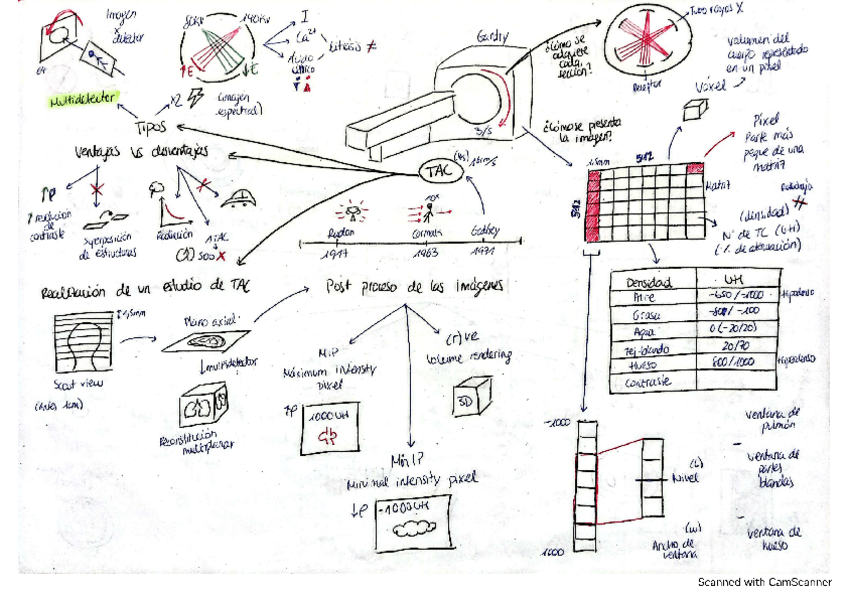 Imagen
x
detector
Multidetector
Tipos
80Kv
140Kv
↑E
↓E
x2
I
Ca²⁺
Ácido
úrico
Litiasis ≠
Gantry
3/s
¿Cómo se
adquiere
cada
sección?
Tubo rayos X
Receptor
Volumen del
cuerpo representado
en un píxel
Vóxel
¿Cómo se presenta
la imagen?
Píxel
Parte más
peque de una
matriz
512
512
Matriz
(densidad)
Nº de TC (UH)
(% de atenuación)
Ventajas vs desventajas
↑ resolución de
contraste
Superposición
de estructuras
Radiación
500 X
TAC
Radon
Cormack
1917
1963
1971
Realización de un estudio de TAC
Scout view
Plano axial
Multidetector
Reconstitución
multiplanar
Post proceso de las imágenes
MIP
Máximum intensity
pixel
↑P
1000 UH
(r)ve
Volume rendering
3D
MinIP
Minimal intensity pixel
↓P
-1000 UH
Densidad
UH
Aire
-650/-1000
Hipodenso
Grasa
Agua
0 (-20/20)
Tej. blando
20/70
Hueso
800/1000
Hiperdenso
Contraste
-1000
1000
(L)
Nivel
(W)
Ancho de
ventana
ventana de
pulmón
ventana de
partes
blandas
ventana de
hueso
Scanned with CamScanner